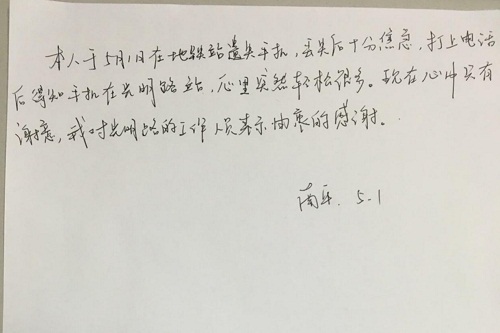 本人于5月1日在地铁站遗失手机，丢失后十分焦急，打上电话
后得知手机在光明路站，心里突然轻松很多。现在心中只有
谢意，我对光明路的工作人员表示由衷的感谢。
5.1